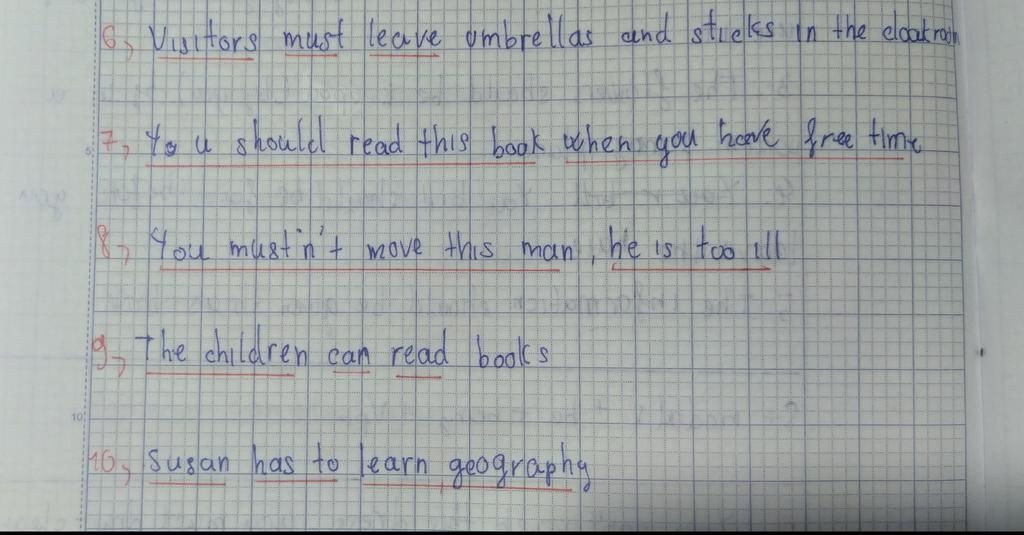 6, Visitors must leave umbrellas and sticks in the cloakroom
7, You should read this book when you have free time
8, You must'n't move this man, he is too ill
9, The children can read books
10
10, Susan has to learn geography